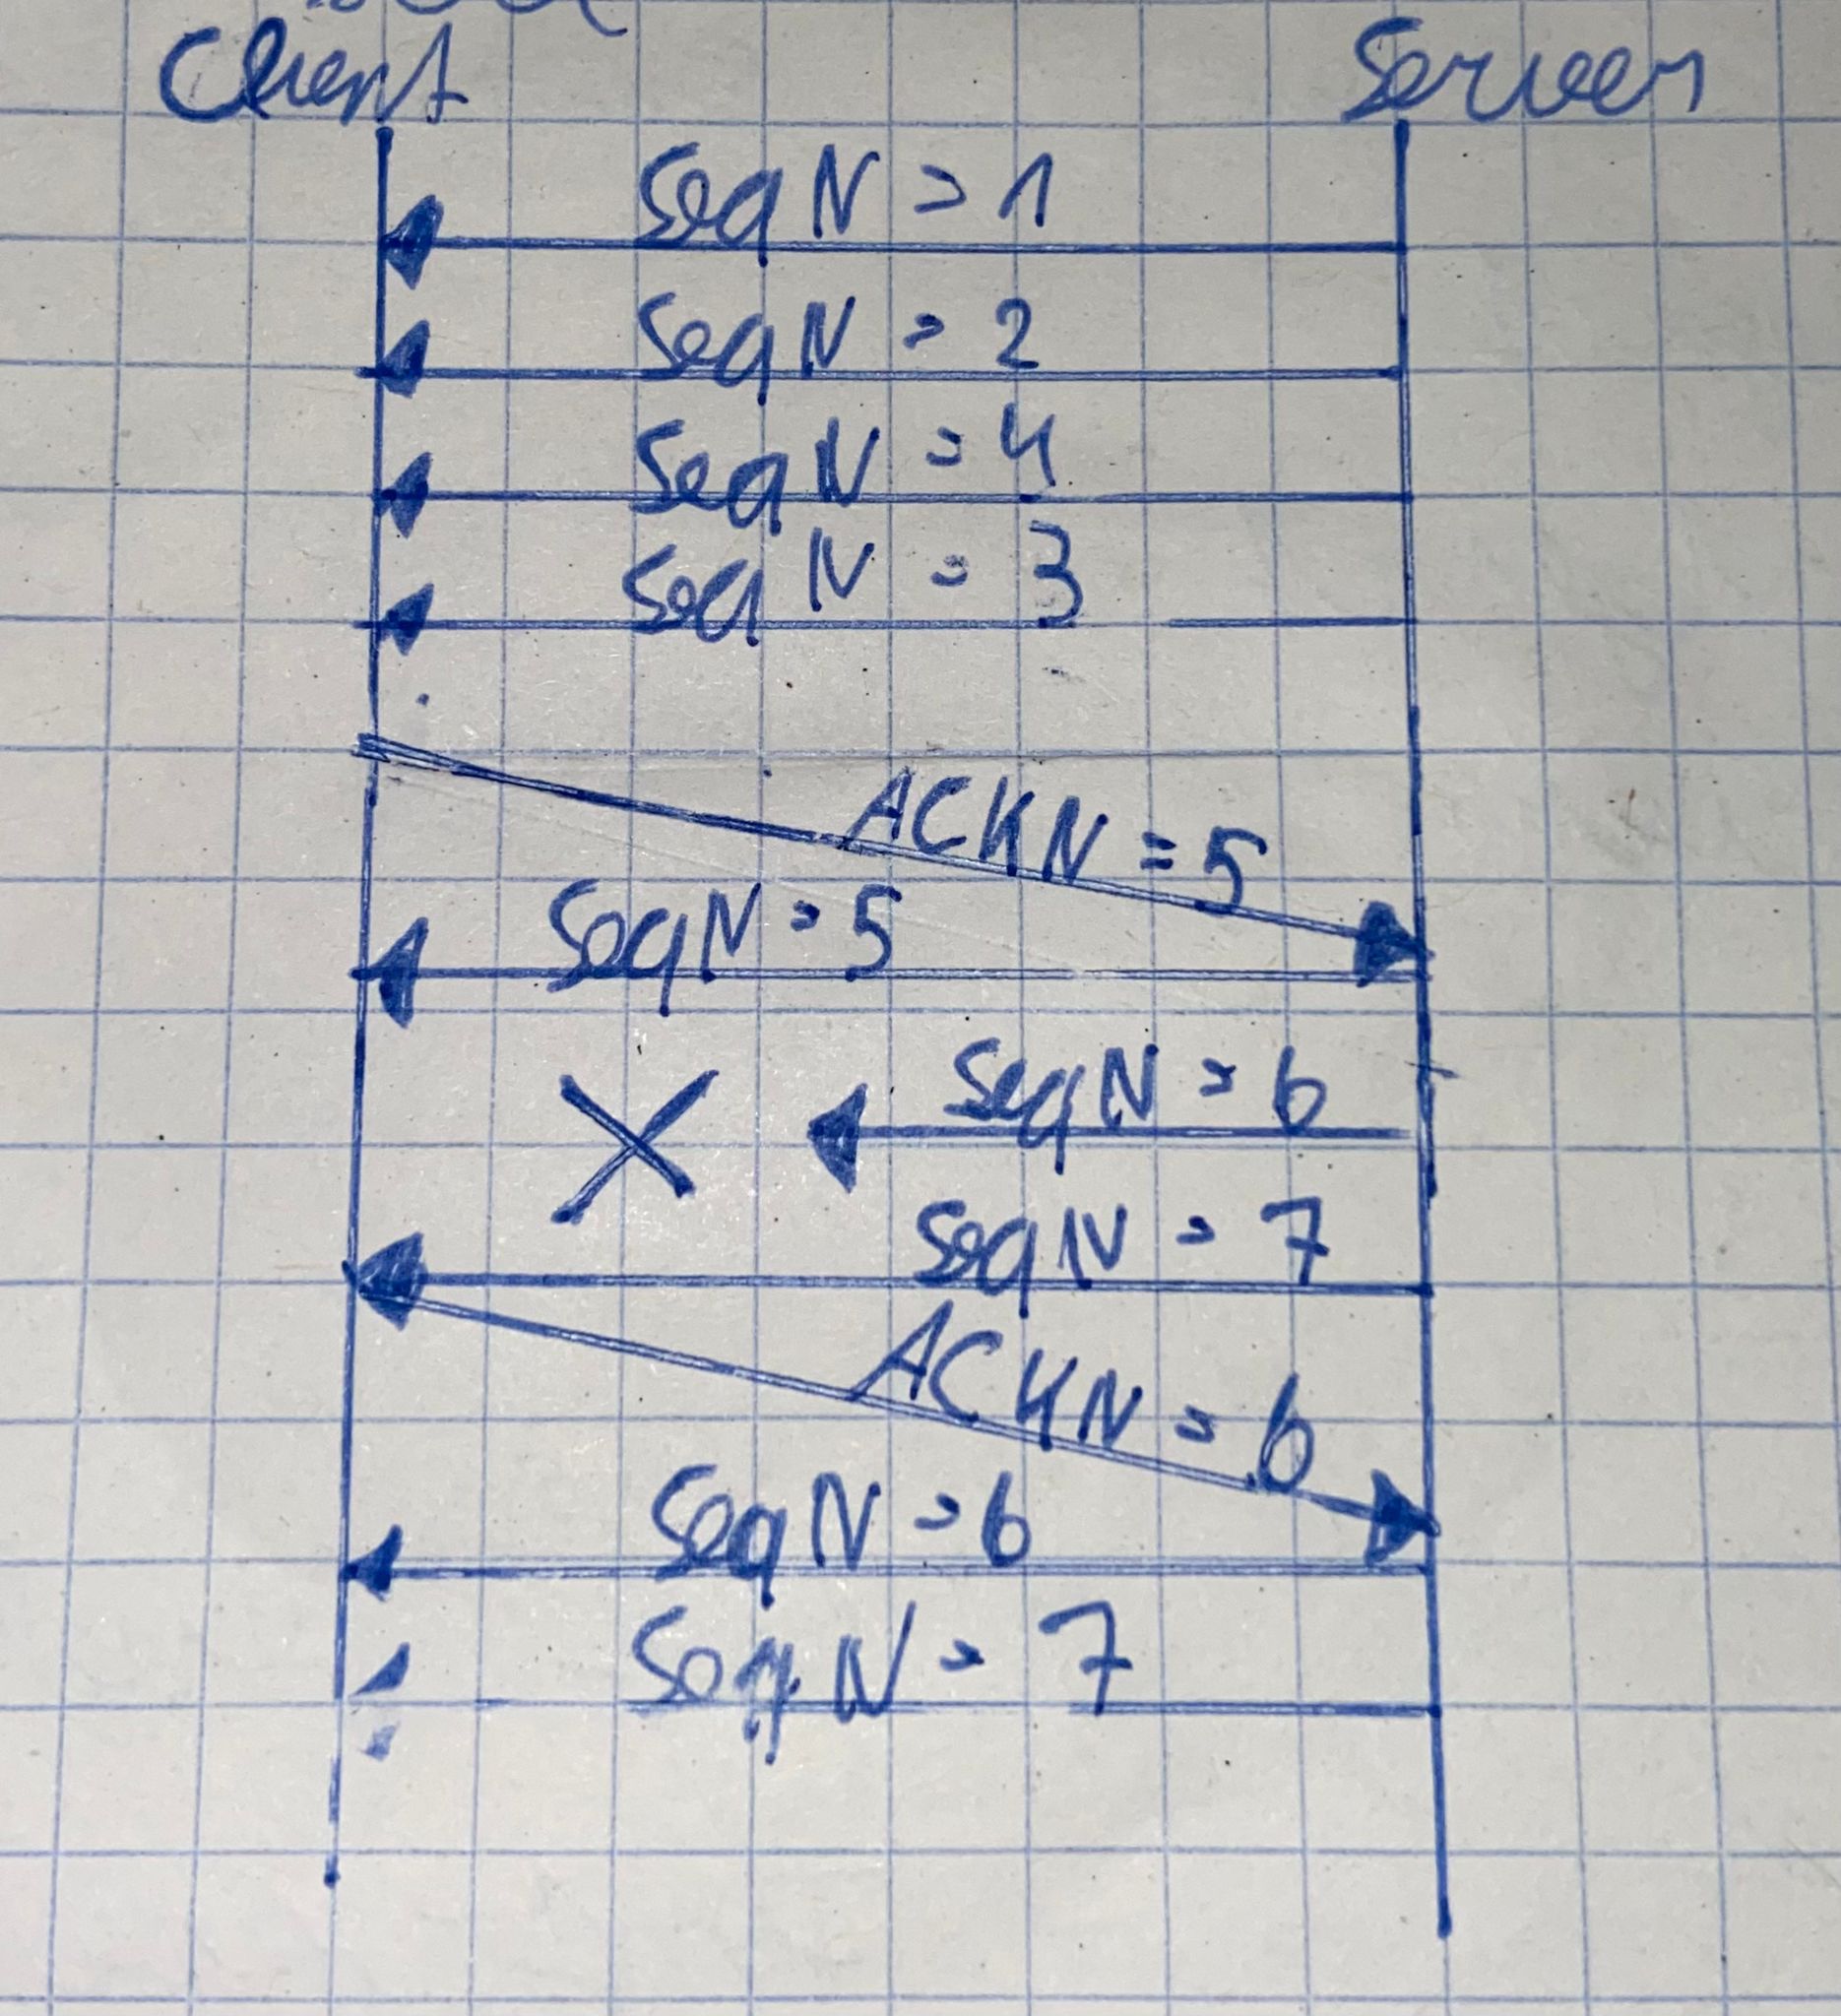 Client Server
Seq N = 1
Seq N = 2
Seq N = 4
Seq N = 3
ACKN = 5
SeqN = 5
SeqN = 6
Seq N = 7
ACKN = 6
Seq N = 6
Seq N = 7